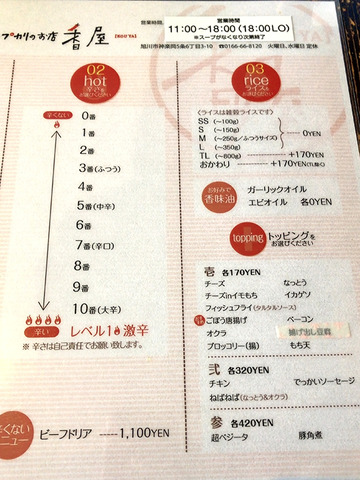 プカリのお店 香屋 【KOU YA】
営業時間、
営業時間
11:00～18:00(18:00LO)
※スープがなくなり次第終了
旭川市神楽岡5条6丁目3-10 ☎0166-66-8120 火曜日,水曜日 定休
02
hot
辛さを
お選びください
辛くない
0番
1番
2番
3番(ふつう)
4番
5番(中辛)
6番
7番(辛口)
8番
9番
10番(大辛)
辛い レベル1 激辛
※ 辛さは自己責任でお願い致します。
辛くない
ニュー
ビーフドリア 1,100YEN
03
rice
ライスを
お選びください
(ライスは雑穀ライスです)
SS (～100g)
S (～150g)
M (～250g/ふつうサイズ)
L (～350g)
0YEN
TL (～800g) +170YEN
おかわり +170YEN(TL除く)
お好みで
香味油
ガーリックオイル
エビオイル 各0YEN
topping
トッピングを
お選びください
壱 各170YEN
チーズ なっとう
チーズinイモもち イカゲソ
フィッシュフライ(タルタルソース)
ごぼう唐揚げ ベーコン
オクラ 揚げ出し豆腐
ブロッコリー(揚) もち天
弐 各320YEN
チキン でっかいソーセージ
ねばねば(なっとう&オクラ)
参 各420YEN
超ベジータ 豚角煮